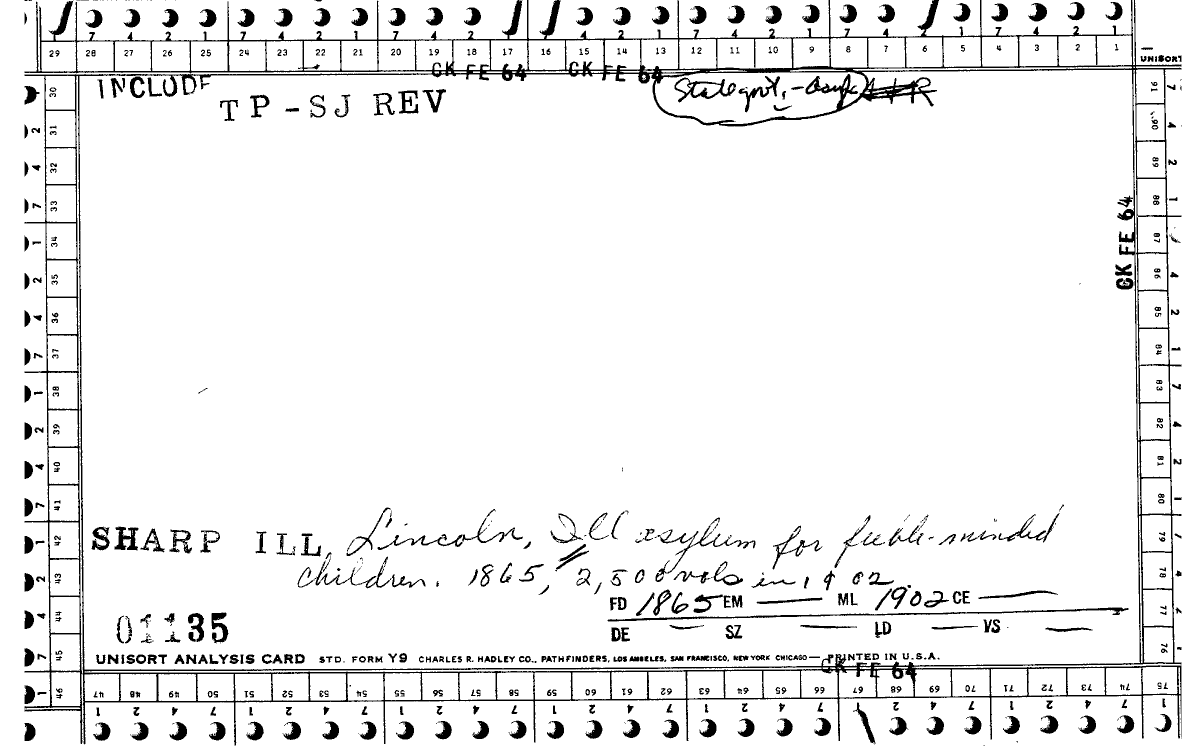 7 4 2 1 7 4 2 1 7 4 2 1 7 4 2 1 7 4 2 1 7 4 2 1
29 28 27 26 25 24 23 22 21 20 19 18 17 16 15 14 13 12 11 10 9 8 7 6 5 4 3 2 1
UNISORT
CK FE 64 CK FE 64
INCLUDE
TP-SJ REV
State govt.-asyl
CK FE 64
30 31 32 33 34 35 36 37 38 39 40 41 42 43 44 45 46
91 90 89 88 87 86 85 84 83 82 81 80 79 78 77 76 75
SHARP ILL, Lincoln, Ill asylum for feeble-minded
children. 1865, 2,500 vols in 1902.
FD 1865 EM — ML 1902 CE —
01135
DE — SZ — LD — VS —
UNISORT ANALYSIS CARD STD. FORM Y9 CHARLES R. HADLEY CO., PATHFINDERS, LOS ANGELES, SAN FRANCISCO, NEW YORK CHICAGO — PRINTED IN U.S.A.
CK FE 64
47 48 49 50 51 52 53 54 55 56 57 58 59 60 61 62 63 64 65 66 67 68 69 70 71 72 73 74
1 2 4 7 1 2 4 7 1 2 4 7 1 2 4 7 1 2 4 7 1 2 4 7 1 2 4 7